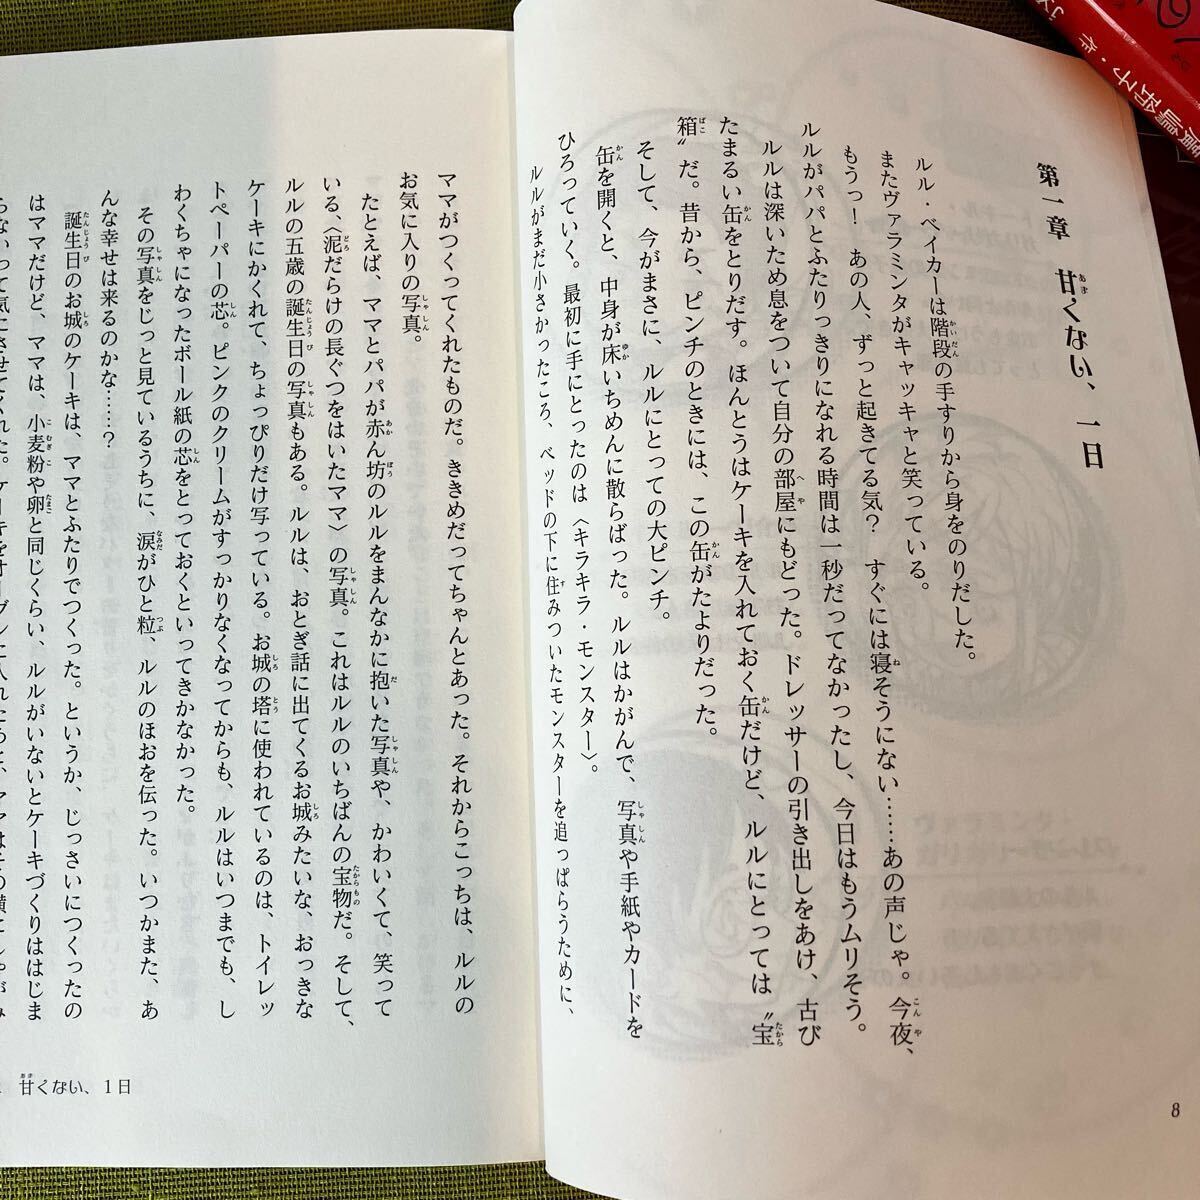 第一章　甘くない、一日
ルル・ベイカーは階段の手すりから身をのりだした。
またヴァラミンタがキャッキャと笑っている。
もうっ！　あの人、ずっと起きてる気？　すぐには寝そうにない……あの声じゃ。今夜、
ルルがパパとふたりっきりになれる時間は一秒だってなかったし、今日はもうムリそう。
ルルは深いため息をついて自分の部屋にもどった。ドレッサーの引き出しをあけ、古び
たまるい缶をとりだす。ほんとうはケーキを入れておく缶だけど、ルルにとっては〝宝
箱〟だ。昔から、ピンチのときには、この缶がたよりだった。
そして、今がまさに、ルルにとっての大ピンチ。
缶を開くと、中身が床いちめんに散らばった。ルルはかがんで、写真や手紙やカードを
ひろっていく。最初に手にとったのは〈キラキラ・モンスター〉。
ルルがまだ小さかったころ、ベッドの下に住みついたモンスターを追っぱらうために、
8
ママがつくってくれたものだ。ききめだってちゃんとあった。それからこっちは、ルルの
お気に入りの写真。
たとえば、ママとパパが赤ん坊のルルをまんなかに抱いた写真や、かわいくて、笑って
いる、〈泥だらけの長ぐつをはいたママ〉の写真。これはルルのいちばんの宝物だ。そして、
ルルの五歳の誕生日の写真もある。ルルは、おとぎ話に出てくるお城みたいな、おっきな
ケーキにかくれて、ちょっぴりだけ写っている。お城の塔に使われているのは、トイレッ
トペーパーの芯。ピンクのクリームがすっかりなくなってからも、ルルはいつまでも、し
わくちゃになったボール紙の芯をとっておくといってきかなかった。
その写真をじっと見ているうちに、涙がひと粒、ルルのほおを伝った。いつかまた、あ
んな幸せは来るのかな……？
誕生日のお城のケーキは、ママとふたりでつくった。というか、じっさいにつくったの
はママだけど、ママは、小麦粉や卵と同じくらい、ルルがいないとケーキづくりははじま
らないって気にさせてくれた。ケーキをオーブンに入れたあと、ママはその横にしゃがみ
甘くない、1日